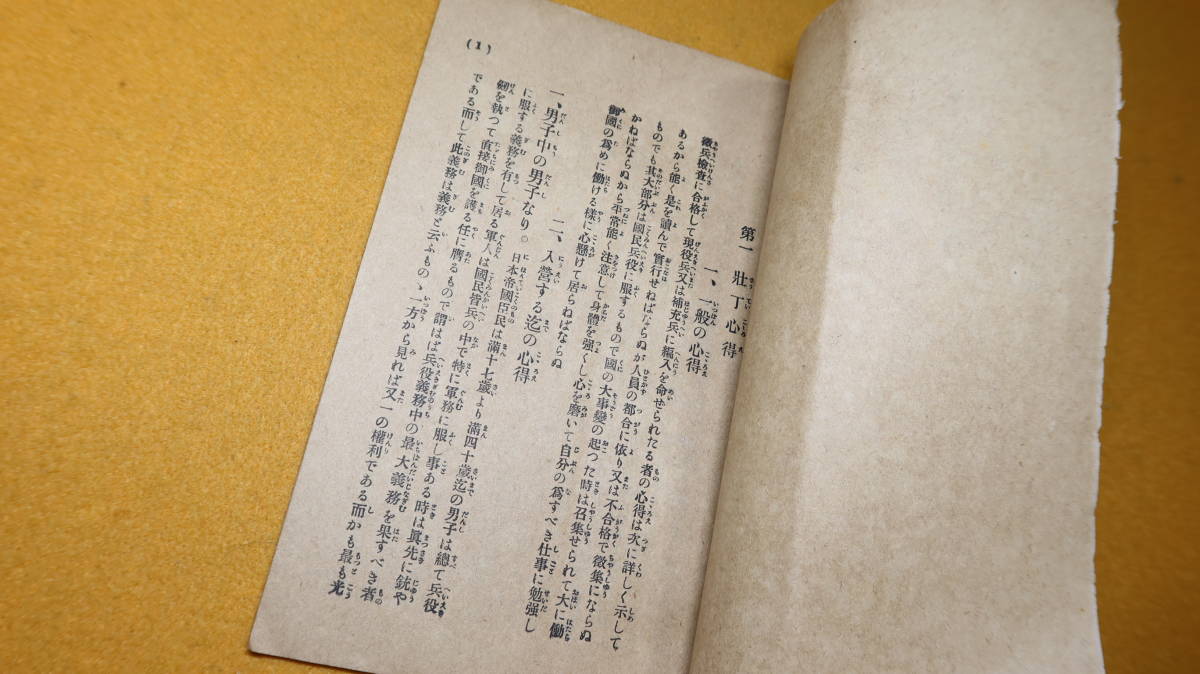 第一 壯丁心得
一、一般の心得
徵兵檢査に合格して現役兵又は補充兵に編入を命せられたる者の心得は次に詳しく示して
あるから能く是を讀んで實行せねばならぬが人員の都合に依り又は不合格で徵集にならぬ
ものでも其大部分は國民兵役に服するもので國の大事變の起つた時は召集せられて大に働
かねばならぬから平常能く注意して身體を强くし心を磨いて自分の爲すべき仕事に勉强し
御國の爲めに働ける樣に心懸けて居らねばならぬ
二、入營する迄の心得
一、男子中の男子なり。 日本帝國臣民は滿十七歲より滿四十歲迄の男子は總て兵役
に服する義務を有して居る軍人は國民皆兵の中で特に軍務に服し事ある時は眞先に銃や
劍を執つて直接御國を護る任に膺るもので謂はば兵役義務中の最大義務を果すべき者
である而して此義務は義務と云ふものゝ一方から見れば又一の權利である而かも最も光
(1)